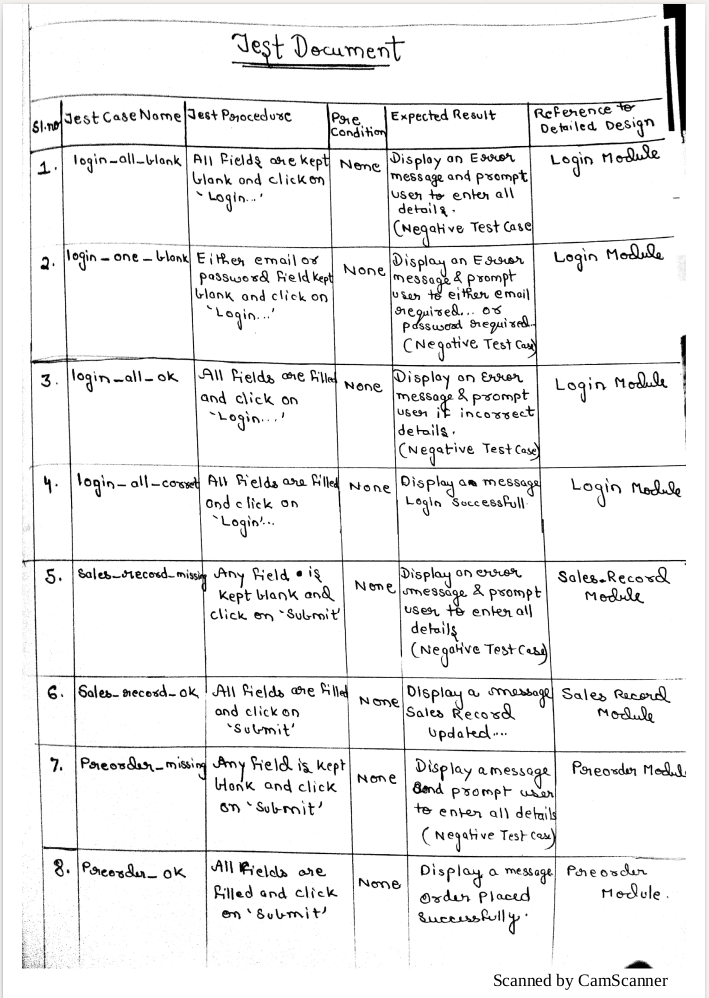 Test Document
Sl.no Test Case Name Test Procedure Pre Condition Expected Result Reference to Detailed Design
1. login_all_blank All fields are kept blank and click on 'Login...' None Display an Error message and prompt user to enter all details. (Negative Test Case Login Module
2. login_one_blank Either email or password field kept blank and click on 'Login...' None Display an Error message & prompt user to either email required... or password required.. (Negative Test Case) Login Module
3. login_all_ok All fields are filled and click on 'Login...' None Display an Error message & prompt user if incorrect details. (Negative Test Case) Login Module
4. login_all_correct All fields are filled and click on 'Login'... None Display a message Login Successfull Login Module
5. Sales_record_missing Any field is kept blank and click on 'Submit' None Display an error message & prompt user to enter all details (Negative Test Case) Sales-Record Module
6. Sales_record_ok All fields are filled and click on 'Submit' None Display a message Sales Record Updated.... Sales Record Module
7. Preorder_missing Any field is kept blank and click on 'Submit' None Display a message and prompt user to enter all details (Negative Test Case) Preorder Modul
8. Preorder_ok All fields are filled and click on 'Submit' None Display a message Order Placed Successfully. Preorder Module.
Scanned by CamScanner